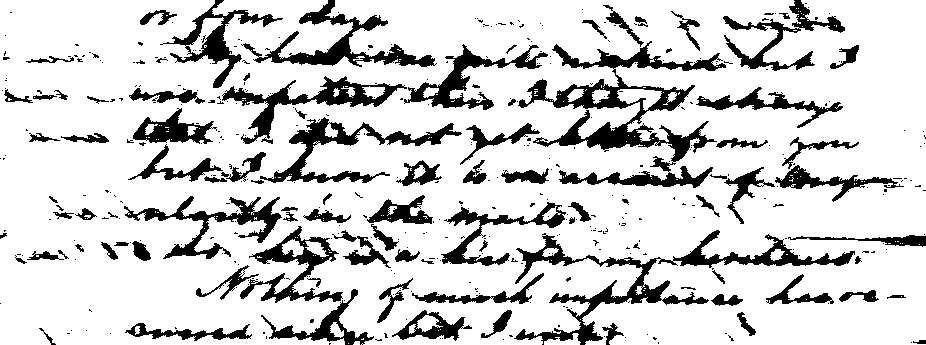 or four days
My hand was quite weakened but I
was impatient then. I thought strange
that I did not get letter from you
but I know it is on account of irreg-
ularity in the mails.
here is a kiss for my
Nothing of much importance has oc-
curred since but I wrote